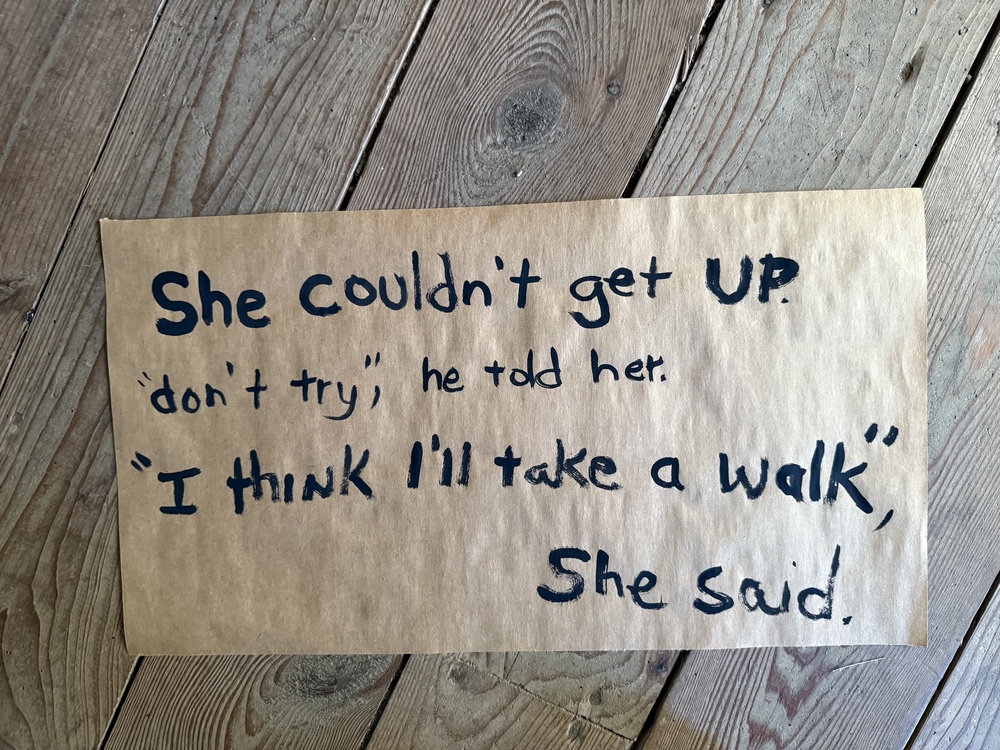 She couldn't get UP.
"don't try", he told her.
"I think I'll take a walk",
She said.